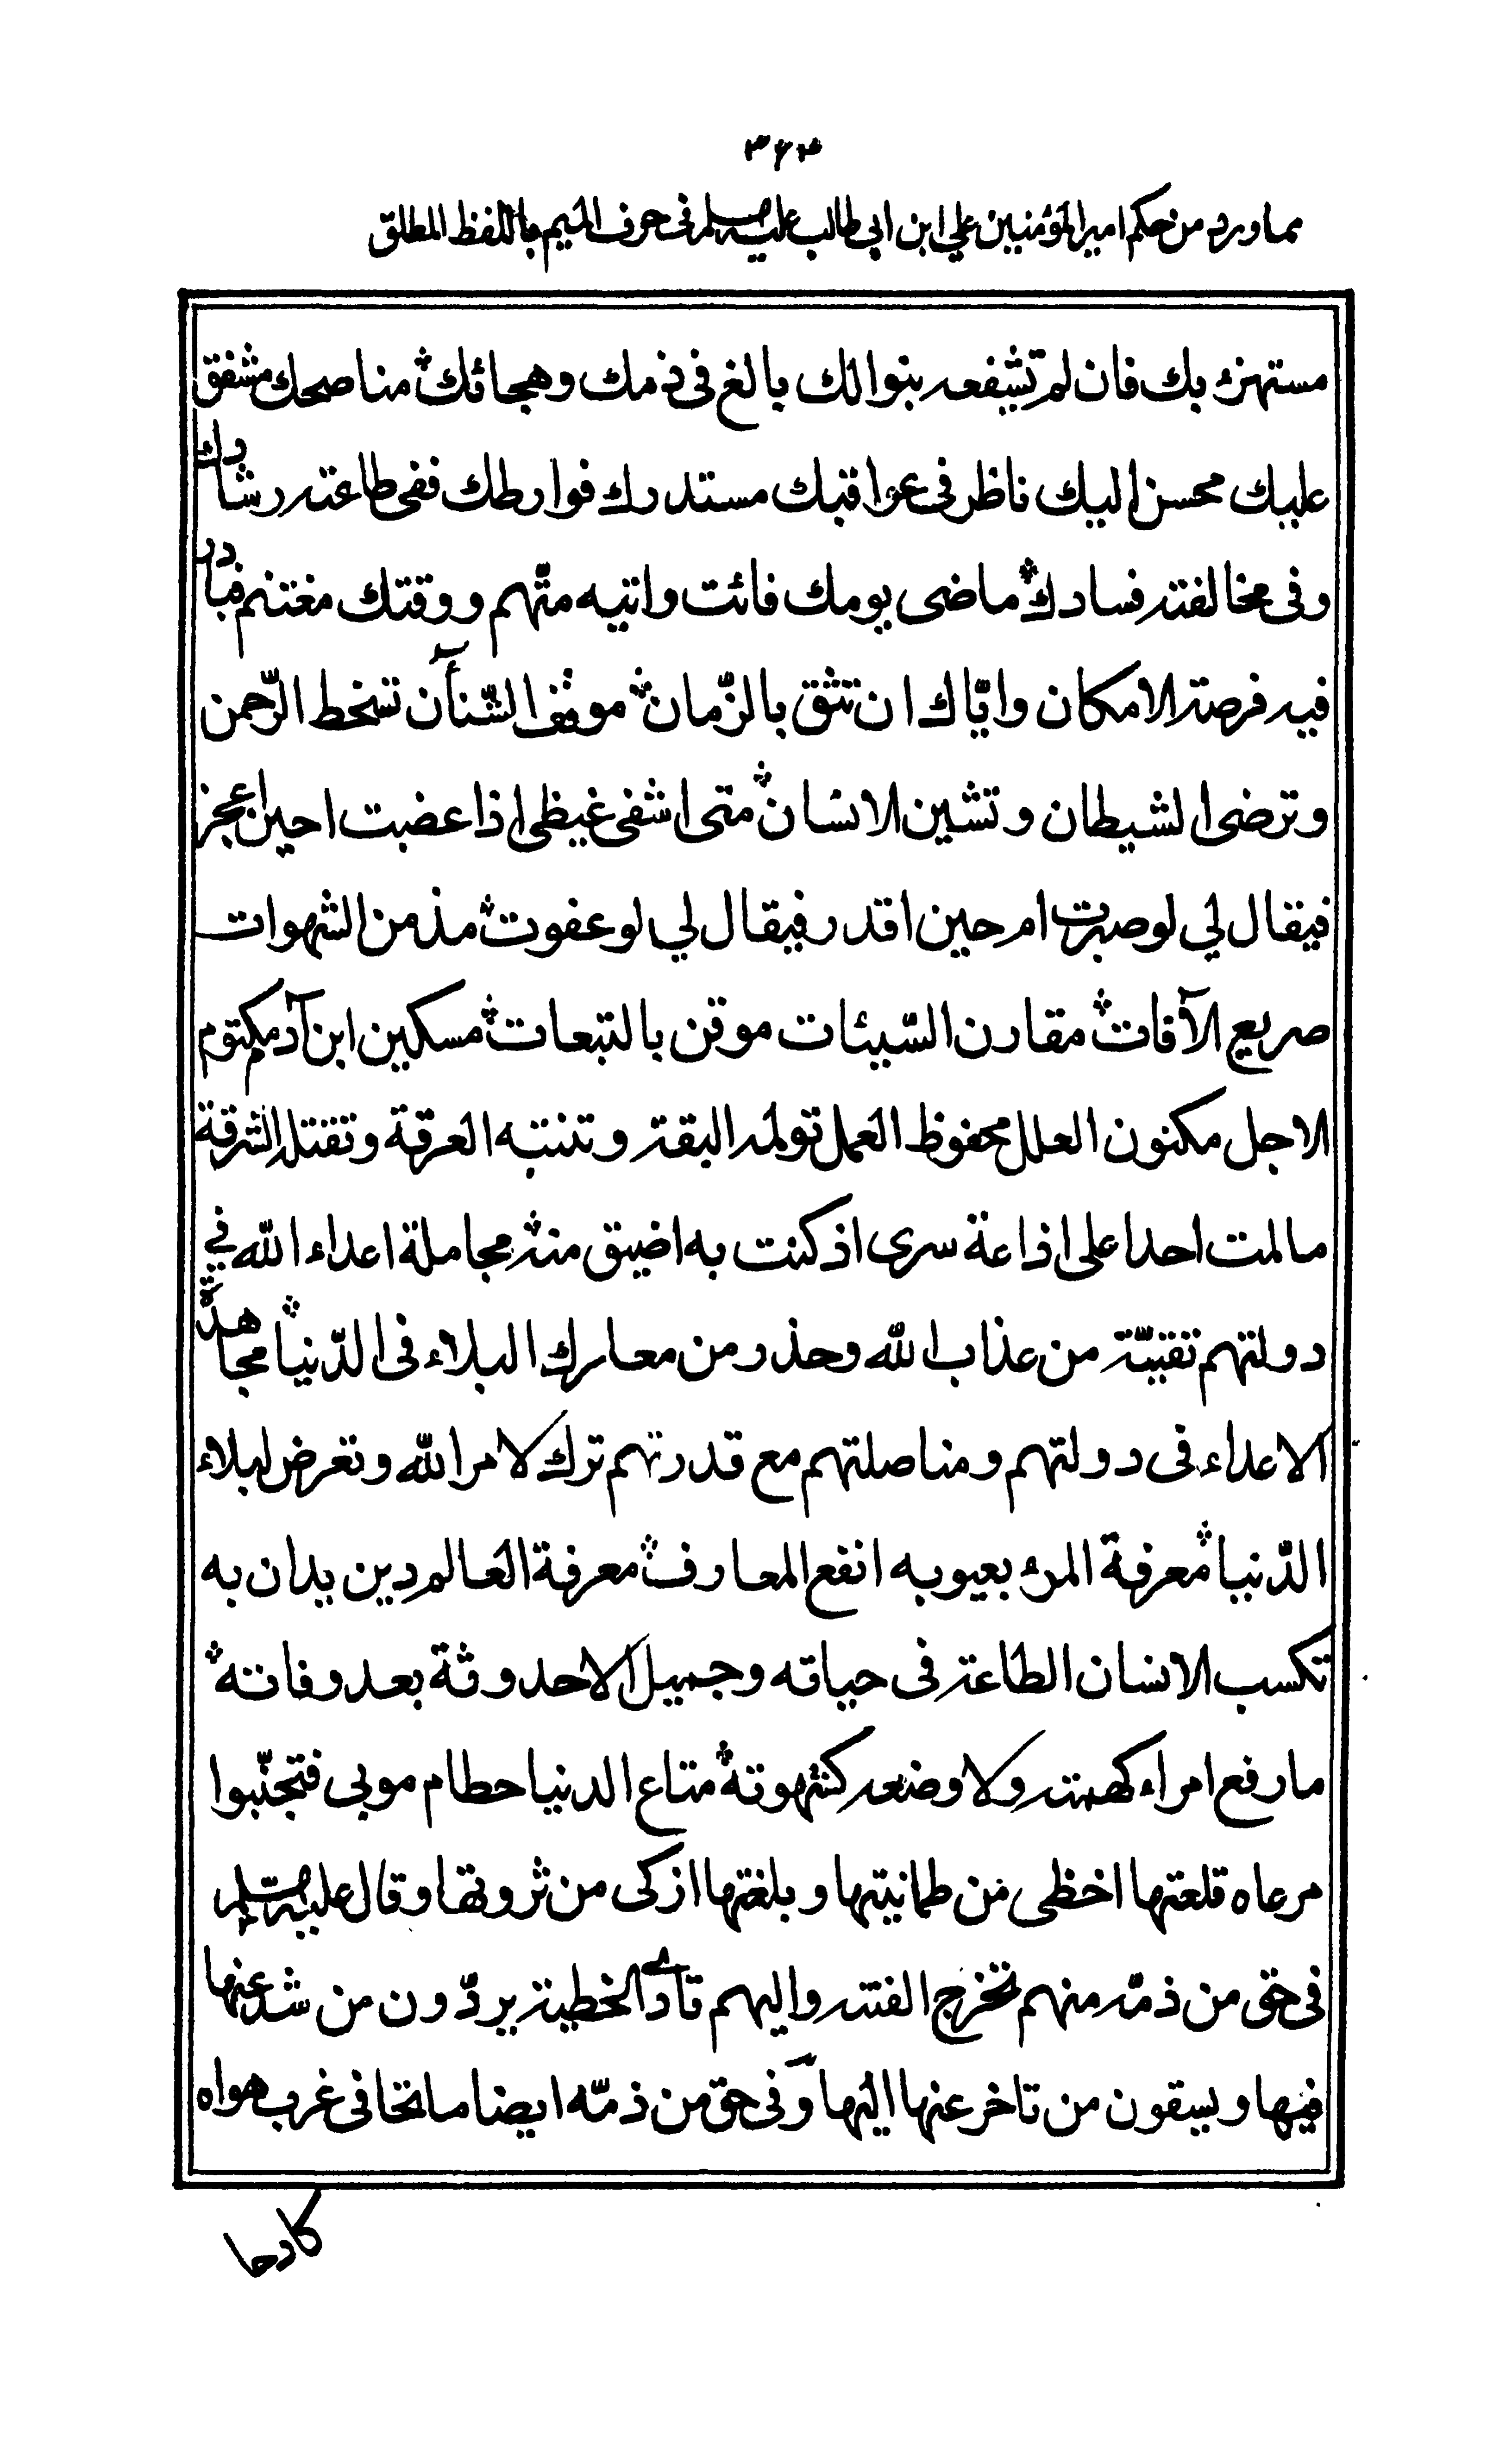 ٣٦٣
مما ورد من حكم امير المؤمنين علي ابن ابي طالب عليه السلم في حرف الميم باللفظ المطلق
مستهزء بك فان لم تشفعه بنوالك بالغ في ذمك وهجائك مناصحك مشفق
عليك محسن اليك ناظر في عواقبك مستدرك فوارطك ففى طاعته رشادك
وفى مخالفته فسادك ماضى يومك فائت واتيه متّهم ووقتك مغتنم فبادر
فيه فرصة الامكان واياك ان تثق بالزّمان الشّنآن تسخط الرّحمن
وترضى الشيطان وتشين الانسان متى اشفى غيظى اذا غضبت احين اعجز
فيقال لي لو صبرت ام حين اقدر فيقال لي لو عفوت مذمن الشهوات
صريع الآفات مقارن السّيئات موقن بالتبعات مسكين ابن آدم مكتوم
الاجل مكنون العلل محفوظ العمل تولمه البقة وتنتنه العرقة وتقتله الشرقة
ما لمت احدا على اذاعة سرى اذ كنت به اضيق منه مجاملة اعداء الله في
دولتهم تقيّة من عذاب الله وحذر من معارك البلاء فى الدّنيا مجاهدة
الاعداء فى دولتهم ومناصلتهم مع قدرتهم ترك لامر الله وتعرض لبلاء
الدّنيا معرفة المرء بعيوبه انفع المعارف معرفة العالم دين يدان به
تكسب الانسان الطاعة فى حياته وجميل الاحدوثة بعد وفاته
ما رفع امراء كهمته ولا وضعه كشهوته متاع الدنيا حطام موبي فتجنّبوا
مرعاه قلعتها احظى من طمانيتها وبلغتها ازكى من ثروتها وقال عليه السلم
فى حق من ذمّه منهم تخرج الفتنه واليهم تأدى الخطيئة يردّون من شذ عنها
فيها ويسقون من تاخر عنها اليها وفى حق من ذمّه ايضا ماتحا فى غرب هواه
كادحا